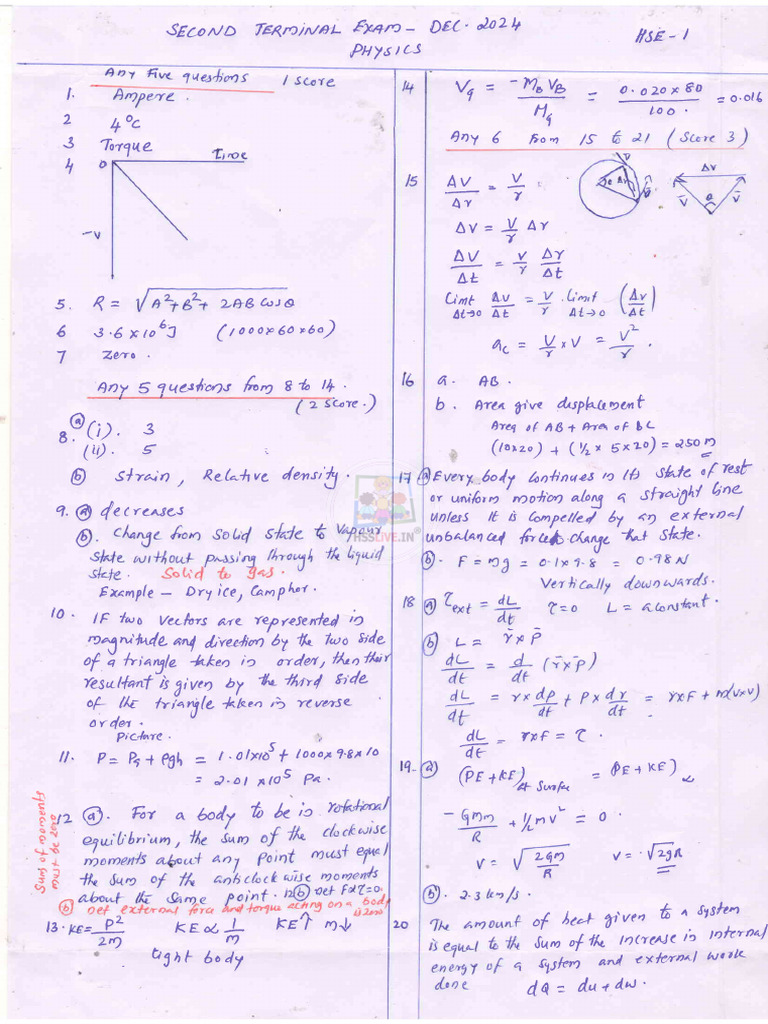 SECOND TERMINAL EXAM - DEC. 2024
PHYSICS
HSE-1
Any Five questions 1 Score
1. Ampere.
2 4°C
3 Torque
4 0 Time
-v
5. R = √A²+B²+2AB cosθ
6 3.6×10⁶J (1000×60×60)
7 Zero.
Any 5 questions from 8 to 14.
(2 Score.)
8. (a) (i). 3
(ii). 5
(b) Strain, Relative density.
9. (a) decreases
(b). Change from solid state to Vapour
state without passing through the liquid
state. Solid to gas.
Example - Dry ice, Camphor.
10. IF two vectors are represented in
magnitude and direction by the two side
of a triangle taken in order, then their
resultant is given by the third side
of the triangle taken in reverse
order.
Picture.
11. P = Pa + ρgh = 1.01×10⁵ + 1000×9.8×10
= 2.01×10⁵ Pa.
12 (a). For a body to be in rotational
equilibrium, the sum of the clockwise
moments about any point must equal
the sum of the anticlockwise moments
about the same point. 12(b) Net F&τ=0.
(b) net external force and torque acting on a body
is zero
Sum of moments
must be zero
13. KE = P²/2m KE ∝ 1/m KE↑ m↓
light body
14 Vg = -MB VB / Mg = 0.020×80 / 100. = 0.016
Any 6 from 15 to 21 (Score 3)
15 ΔV/Δr = V/r
ΔV = V/r Δr
ΔV/Δt = V/r Δr/Δt
Limt Δt→0 ΔV/Δt = V/r . Limit Δt→0 (Δr/Δt)
ac = V/r × V = V²/r.
16 a. AB.
b. Area give displacement
Area of AB + Area of BC
(10×20) + (1/2 × 5×20) = 250m
17 (a) Every body continues in its state of rest
or uniform motion along a straight line
unless it is compelled by an external
unbalanced force change that state.
(b). F = mg = 0.1×9.8 = 0.98N
Vertically downwards.
18 (a) τext = dL/dt τ=0 L = a constant.
(b) L = r̄×p̄
dL/dt = d/dt (r̄×p̄)
dL/dt = r×dp/dt + p×dr/dt = r×F + m(v×v)
dL/dt = r×F = τ.
19. (a) (PE+KE) at Surface = (PE+KE)∞
-GMm/R + 1/2 mv² = 0.
V = √2GM/R V = √2gR
(b). 2.3 km/s.
20 The amount of heat given to a system
is equal to the sum of the increase in internal
energy of a system and external work
done dQ = du + dw.
HSSLIVE.IN